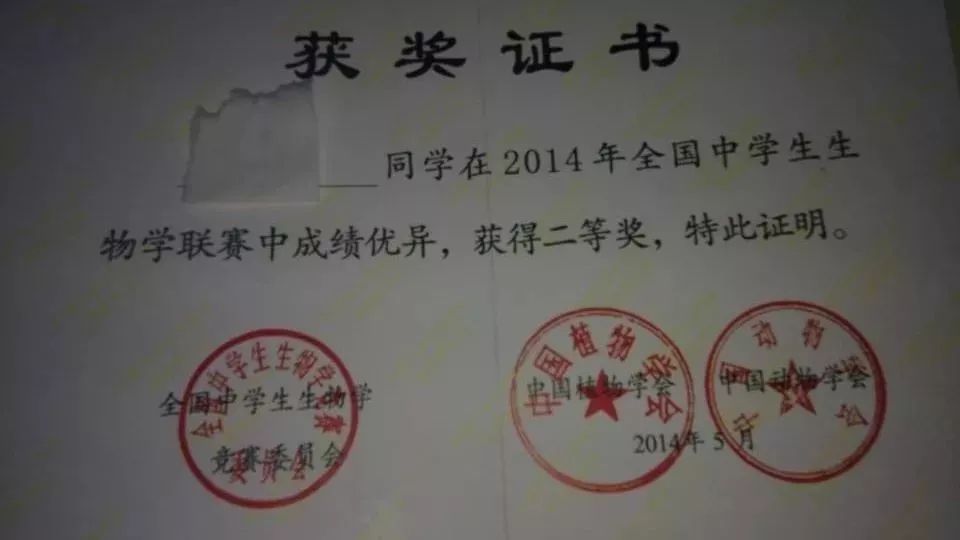 获奖证书
同学在2014年全国中学生生
物学联赛中成绩优异，获得二等奖，特此证明。
全国中学生生物学竞赛
委员会
全国中学生生物学
竞赛委员会
中国植物学会
中国植物学会
中国动物学会
中国动物学会
2014年5月